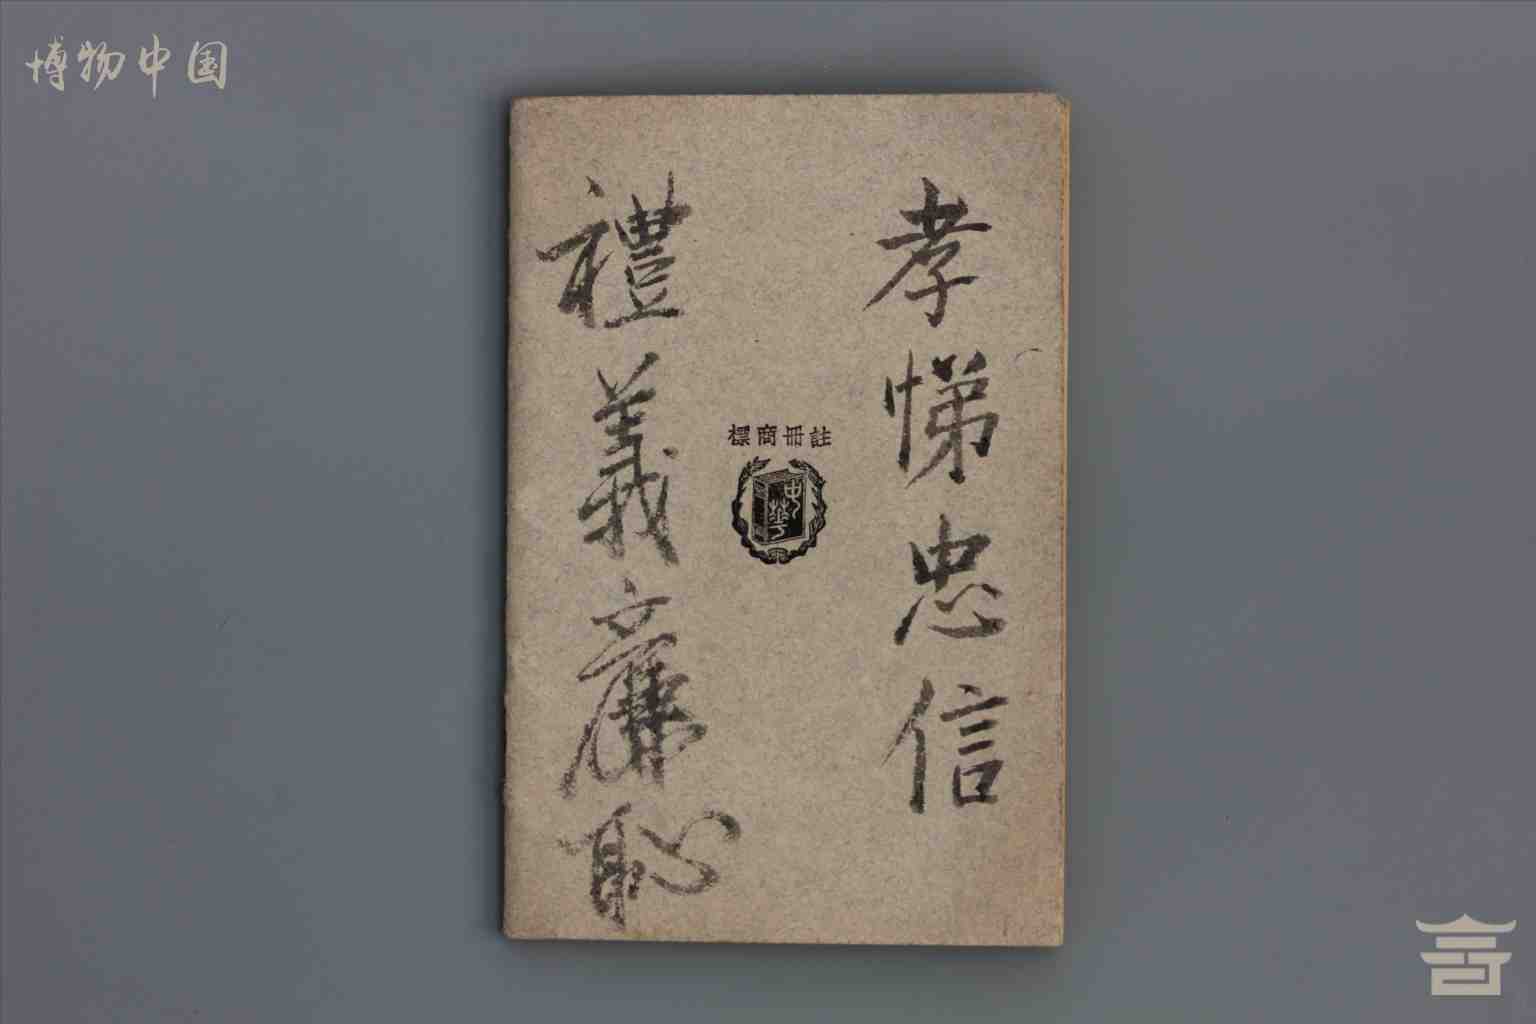 博物中国
孝悌忠信
禮義廉恥
標商冊註
中華